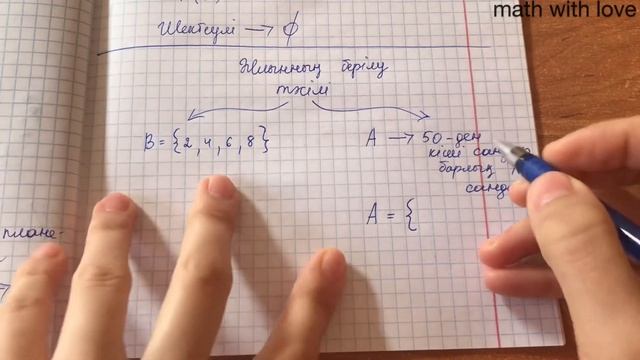 math with love
Шектеулі → ∅
Жиынның берілу
тәсілі
B = {2, 4, 6, 8}
A → 50-ден
кіші
барлық
A = {
плане-